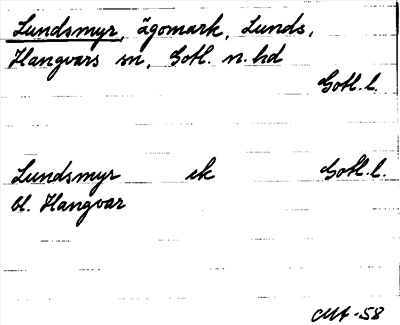 Lundsmyr, ägomark, Lunds,
Hangvars sn, Gotl. n. hd
Gotl. l.
Lundsmyr ek Gotl. l.
bl. Hangvar